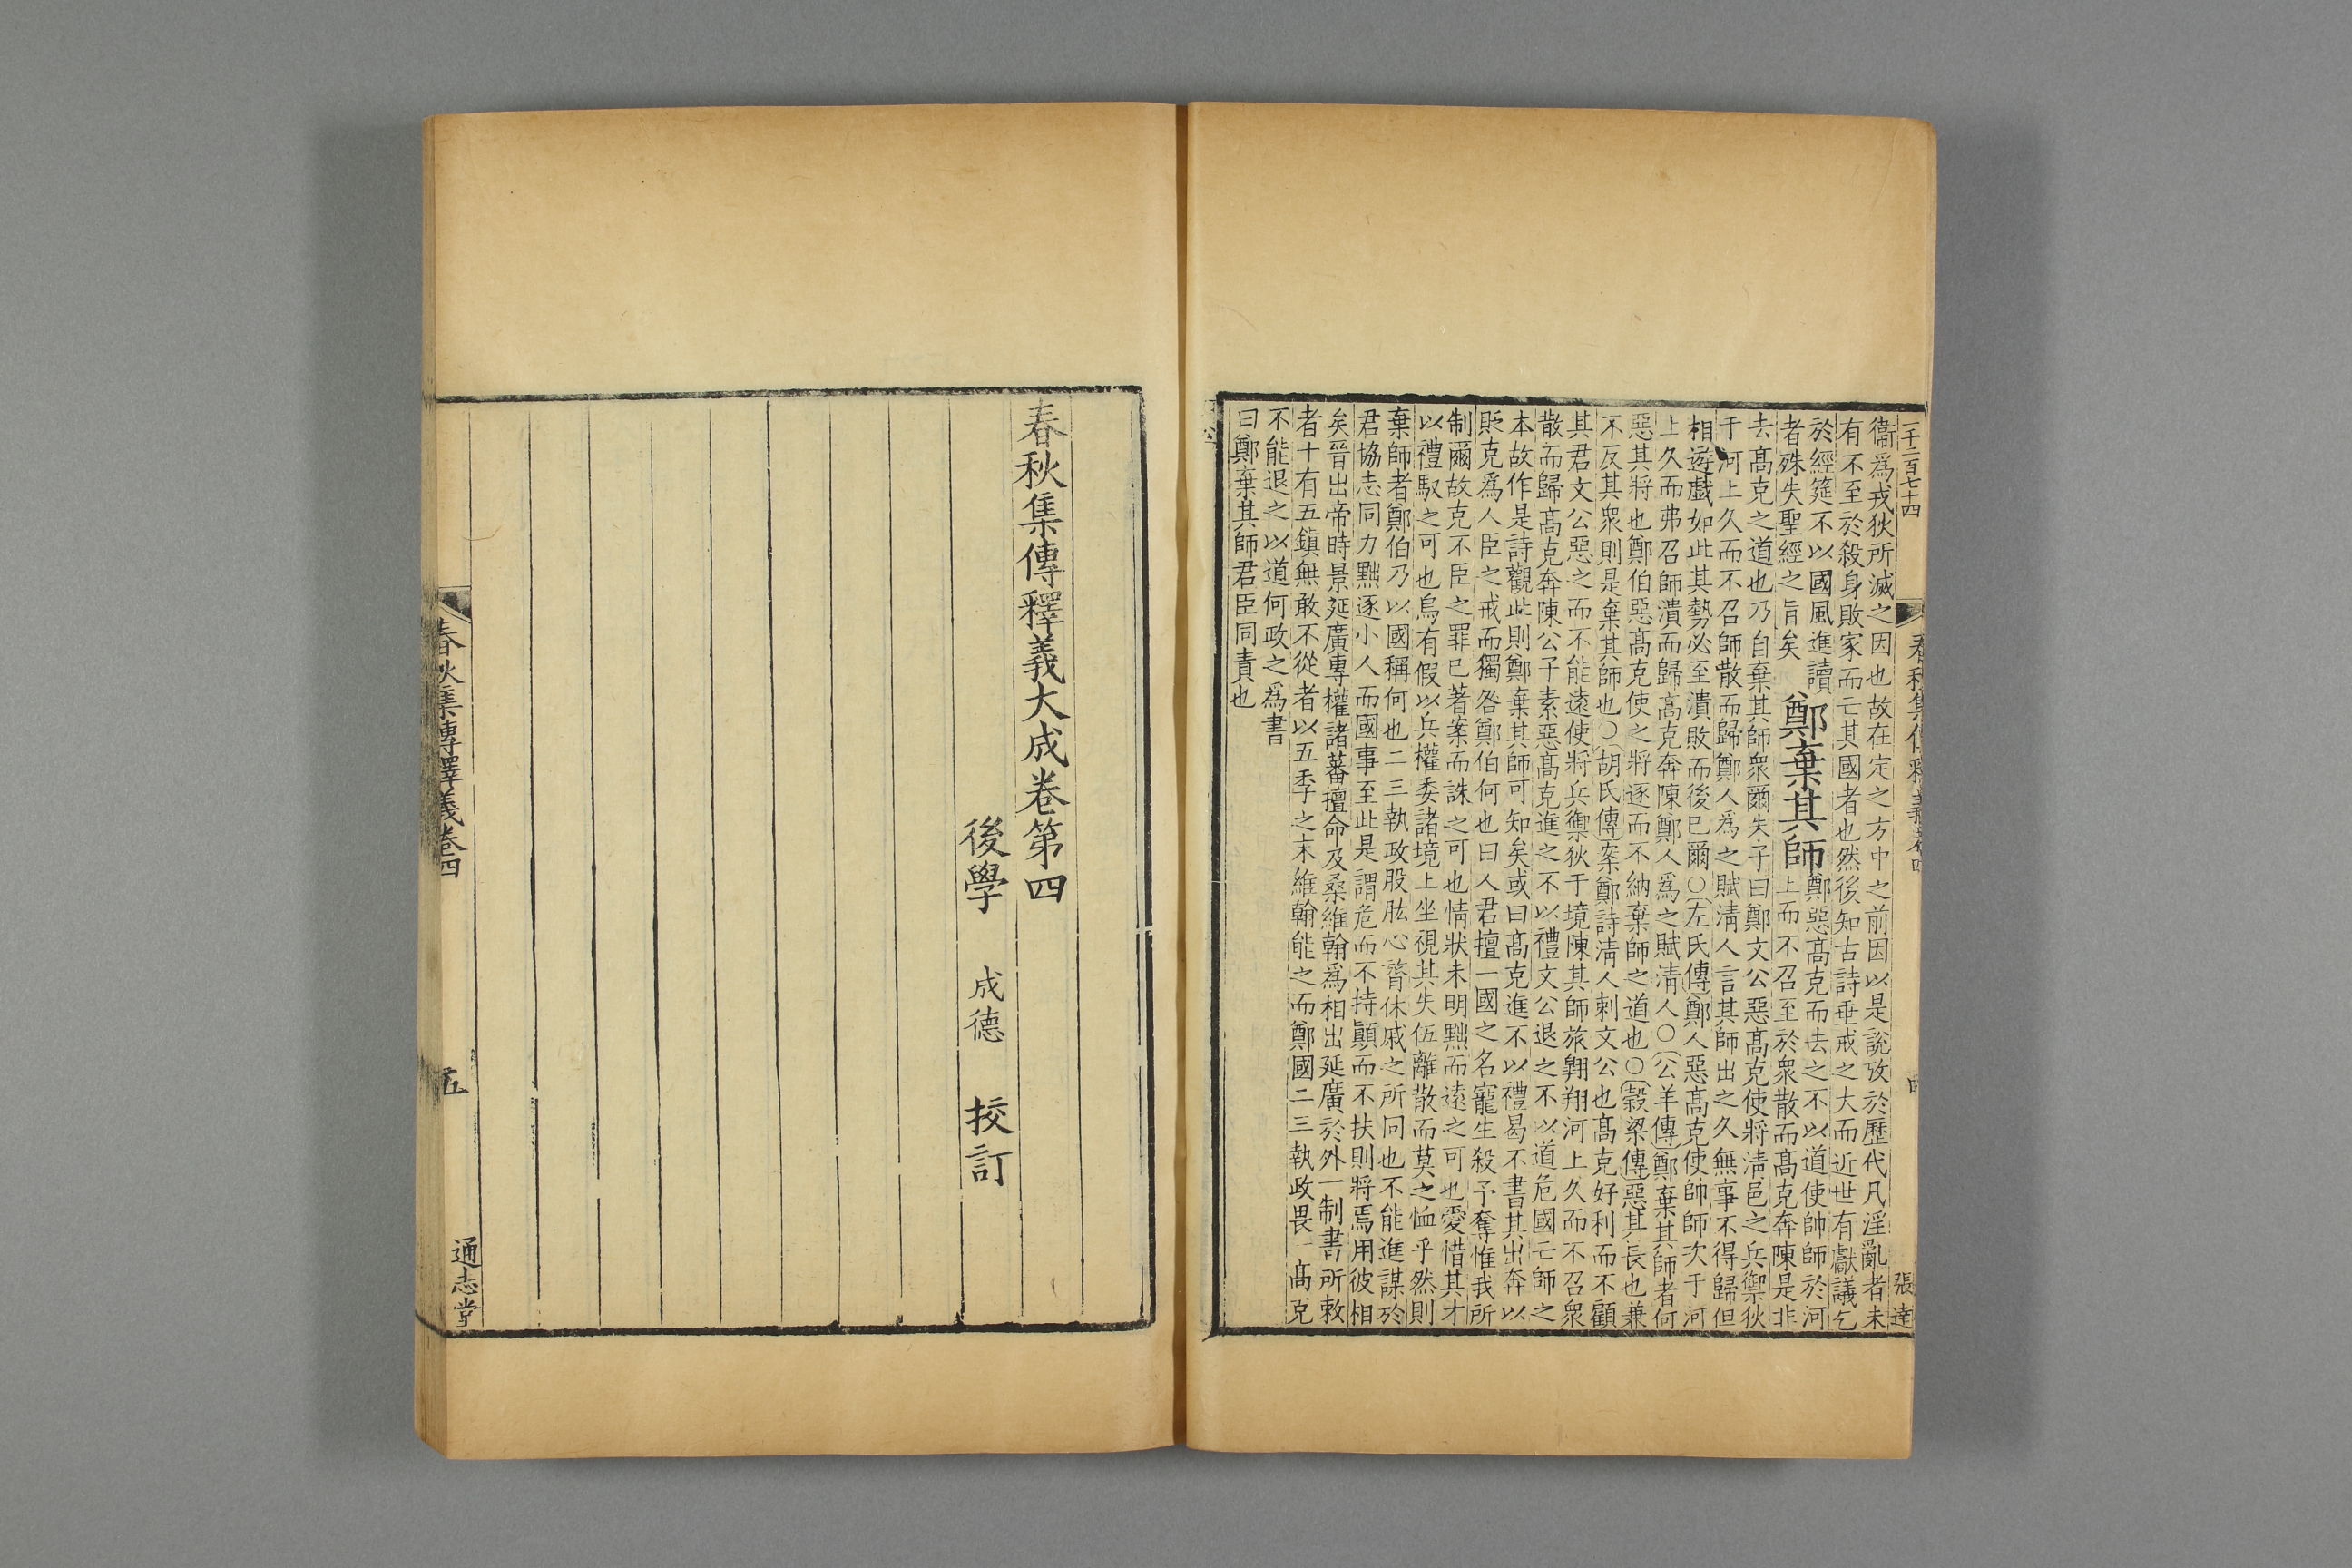 一千二百七十四
春秋集傳釋義卷四
四
張達
衞爲戎狄所滅之因也故在定之方中之前因以是說攷於歷代凡淫亂者未
有不至於殺身敗家而亡其國者也然後知古詩垂戒之大而近世有獻議乞
於經筵不以國風進讀
者殊失聖經之旨矣
鄭棄其師
鄭惡髙克而去之不以道使帥師於河
上而不召至於衆散而髙克奔陳是非
去髙克之道也乃自棄其師衆爾朱子曰鄭文公惡髙克使將淸邑之兵禦狄
于河上久而不召師散而歸鄭人爲之賦淸人言其師出之久無事不得歸但
相遊戲如此其勢必至潰敗而後已爾○左氏傳鄭人惡髙克使帥師次于河
上久而弗召師潰而歸髙克奔陳鄭人爲之賦淸人○公羊傳鄭棄其師者何
惡其將也鄭伯惡髙克使之將逐而不納棄師之道也○穀梁傳惡其長也兼
不反其衆則是棄其師也○胡氏傳案鄭詩淸人刺文公也髙克好利而不顧
其君文公惡之而不能遠使將兵禦狄于境陳其師旅翺翔河上久而不召衆
散而歸髙克奔陳公子素惡髙克進之不以禮文公退之不以道危國亡師之
本故作是詩觀此則鄭棄其師可知矣或曰髙克進不以禮曷不書其出奔以
貶克爲人臣之戒而獨咎鄭伯何也曰人君擅一國之名寵生殺予奪惟我所
制爾故克不臣之罪已著案而誅之可也情狀未明黜而遠之可也愛惜其才
以禮馭之可也烏有假以兵權委諸境上坐視其失伍離散而莫之恤乎然則
棄師者鄭伯乃以國稱何也二三執政股肱心膂休戚之所同也不能進謀於
君協志同力黜逐小人而國事至此是謂危而不持顚而不扶則將焉用彼相
矣晉出帝時景延廣專權諸蕃擅命及桑維翰爲相出延廣於外一制書所敕
者十有五鎭無敢不從者以五季之末維翰能之而鄭國二三執政畏一髙克
不能退之以道何政之爲書
曰鄭棄其師君臣同責也
春秋集傳釋義大成卷第四
後學 成德 挍訂
春秋集傳釋義卷四
五
通志堂